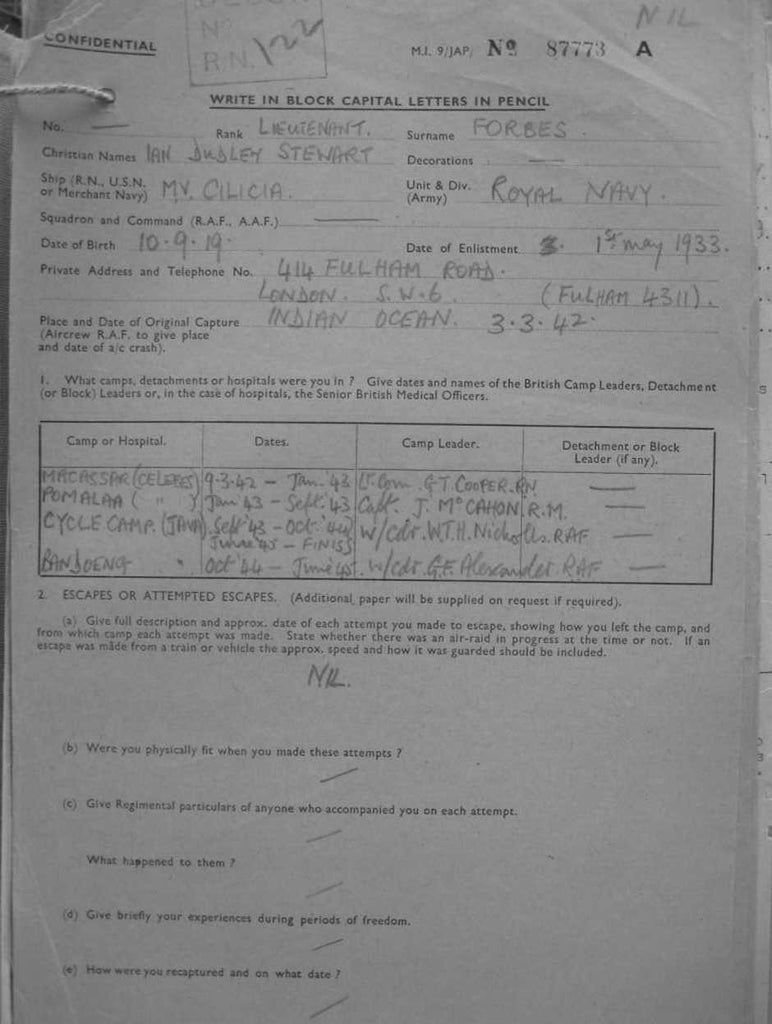 NIL
CONFIDENTIAL
No
R.N. 122
M.I. 9/JAP/ No 87773 A
WRITE IN BLOCK CAPITAL LETTERS IN PENCIL
No. — Rank LIEUTENANT. Surname FORBES.
Christian Names IAN DUDLEY STEWART Decorations —
Ship (R.N., U.S.N. or Merchant Navy) MV. CILICIA. Unit & Div. (Army) ROYAL NAVY.
Squadron and Command (R.A.F., A.A.F.) —
Date of Birth 10.9.19. Date of Enlistment 1st May 1933.
Private Address and Telephone No. 414 FULHAM ROAD.
LONDON. S.W.6. (FULHAM 4311).
Place and Date of Original Capture INDIAN OCEAN. 3.3.42.
(Aircrew R.A.F. to give place
and date of a/c crash).
1. What camps, detachments or hospitals were you in ? Give dates and names of the British Camp Leaders, Detachment
(or Block) Leaders or, in the case of hospitals, the Senior British Medical Officers.
Camp or Hospital. Dates. Camp Leader. Detachment or Block
Leader (if any).
MACASSAR (CELEBES) 9-3-42 – Jan. '43 Lt. Com. G.T. COOPER. RN —
POMALAA ( " ) Jan '43 – Sept. '43 Capt. J. McCAHON R.M. —
CYCLE CAMP. (JAVA). Sept '43 – Oct. '44 W/Cdr. W.T.H. Nicholls. RAF —
June '45 – FINISS
BANDOENG " Oct '44 – June '45 W/Cdr. G.F. Alexander. RAF —
2. ESCAPES OR ATTEMPTED ESCAPES. (Additional paper will be supplied on request if required).
(a) Give full description and approx. date of each attempt you made to escape, showing how you left the camp, and
from which camp each attempt was made. State whether there was an air-raid in progress at the time or not. If an
escape was made from a train or vehicle the approx. speed and how it was guarded should be included.
NIL.
(b) Were you physically fit when you made these attempts ?
(c) Give Regimental particulars of anyone who accompanied you on each attempt.
What happened to them ?
(d) Give briefly your experiences during periods of freedom.
(e) How were you recaptured and on what date ?